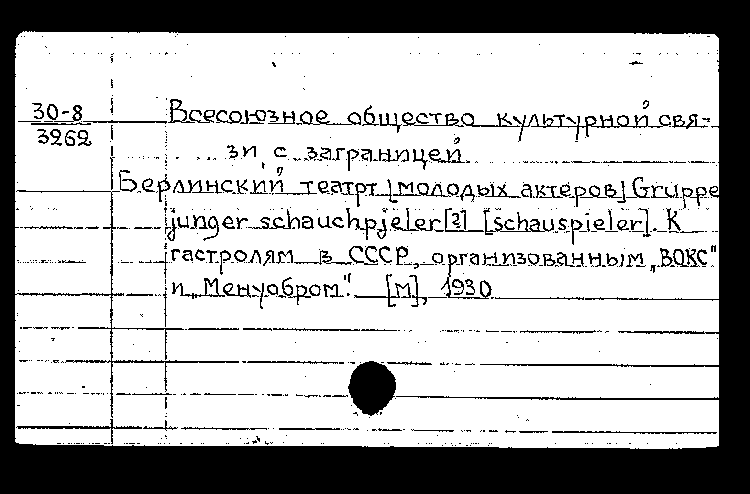 30-8
3262
Всесоюзное общество культурной свя-
зи с заграницей
Берлинский театрт [молодых актеров] Gruppe
junger schauchpjeler[?] [schauspieler]. К
гастролям в СССР, организованным „ВОКС"
и „Менуобром". [м], 1930